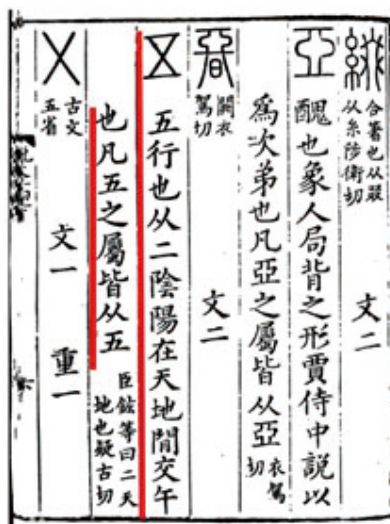 綴 合箸也从叕从糸陟衛切 文二
亞 醜也象人局背之形賈侍中說以
爲次弟也凡亞之屬皆从亞 衣駕切
闕衣駕切 文二
五 五行也从二陰陽在天地閒交午
也凡五之屬皆从五 臣鉉等曰二天地也疑古切
㐅 古文五省 文一 重一